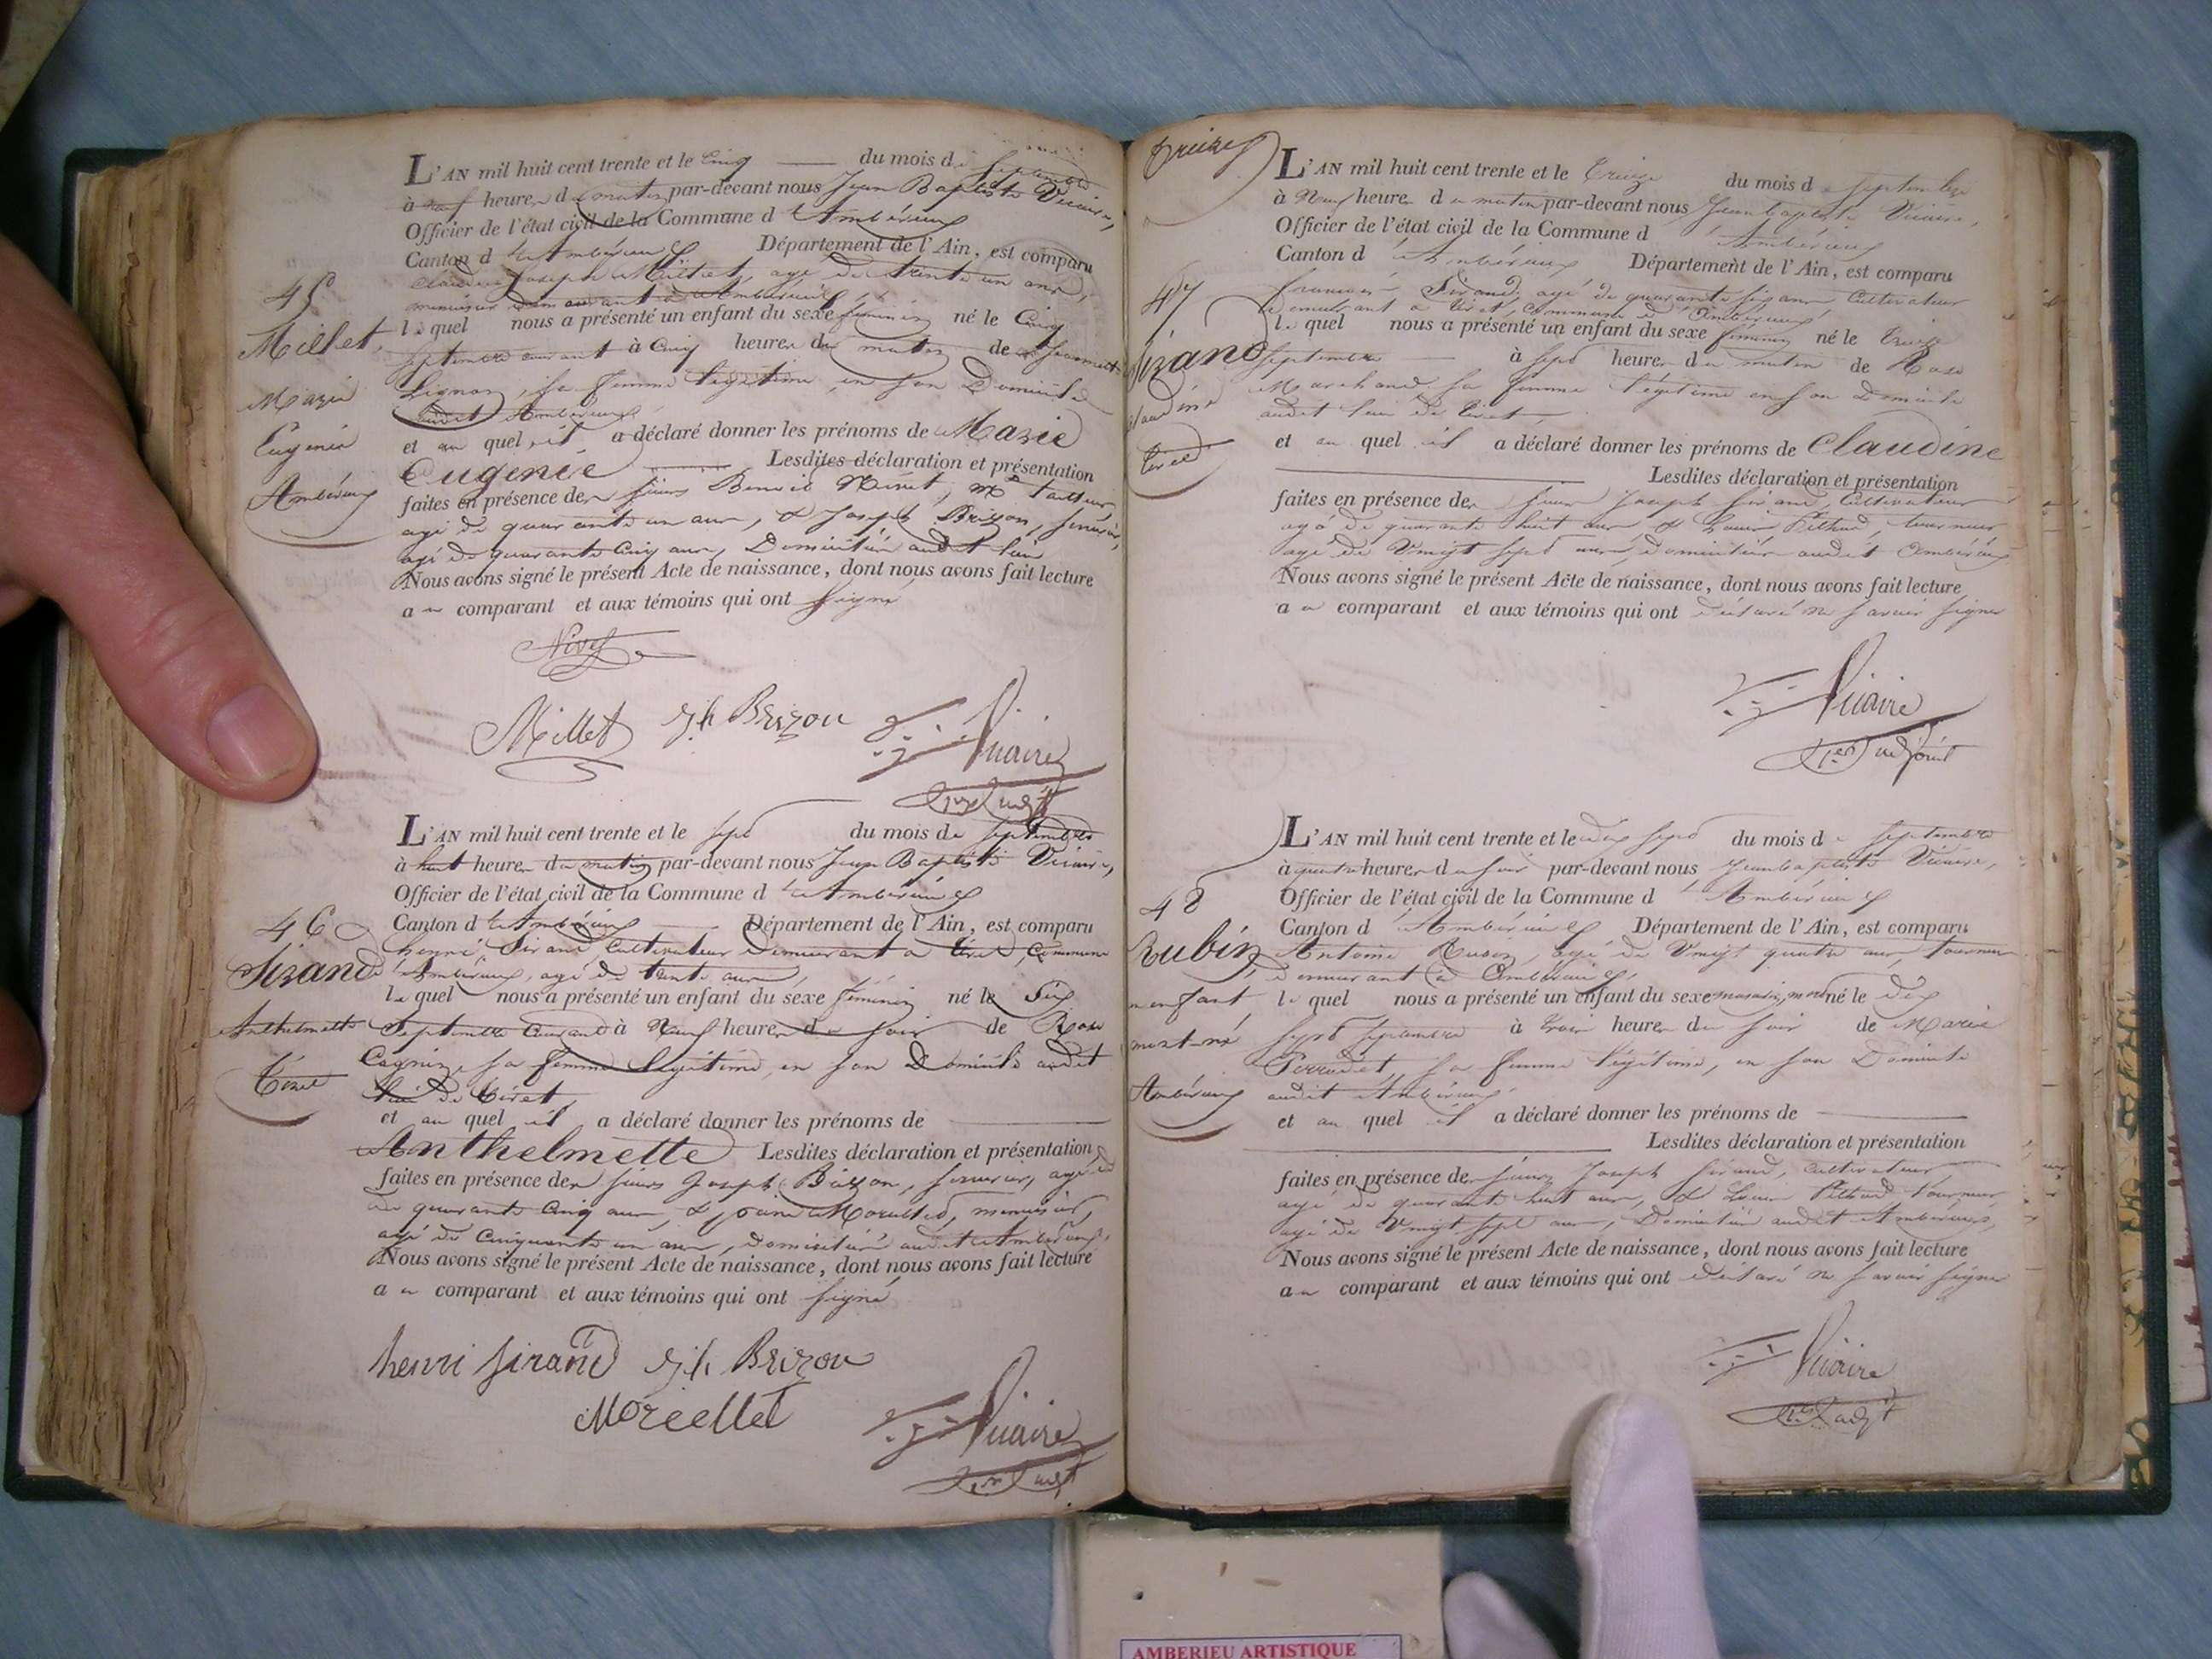 L'AN mil huit cent trente et le Cinq du mois de Septembre
à neuf heures du matin par-devant nous Jean Baptiste Vicaire,
Officier de l'état civil de la Commune d'Ambérieux
Canton d'Ambérieux Département de l'Ain, est comparu
Claude Joseph Millet, agé de trente un ans,
menuisier demeurant à Ambérieux
45
Millet,
Marie
Eugenie
Ambérieux
lequel nous a présenté un enfant du sexe féminin né le Cinq
Septembre courant à Cinq heures du matin de
sa femme légitime, en son Domicile
audit Ambérieux
et au quel il a déclaré donner les prénoms de Marie
Eugenie Lesdites déclaration et présentation
faites en présence des sieurs Benoit tailleur
agé de quarante un ans, & Joseph Brizon, serrurier,
agé de quarante Cinq ans, Domiciliés audit lieu
Nous avons signé le présent Acte de naissance, dont nous avons fait lecture
au comparant et aux témoins qui ont signé
Millet Jh Brizon Vicaire
1er adjt
L'AN mil huit cent trente et le sept du mois de Septembre
à huit heures du matin par-devant nous Jean Baptiste Vicaire,
Officier de l'état civil de la Commune d'Ambérieux
Canton d'Ambérieux Département de l'Ain, est comparu
46
Sirand
Anthelmette
Tiret
henri Sirand, Cultivateur Demeurant à tiret, Commune
d'Ambérieux, agé de trente ans,
lequel nous a présenté un enfant du sexe féminin né le Six
Septembre Courant à Neuf heures du soir de Rose
sa femme légitime, en son Domicile audit
lieu de tiret,
et au quel il a déclaré donner les prénoms de
Anthelmette Lesdites déclaration et présentation
faites en présence des sieurs Joseph Brizon, serrurier, agé
de quarante Cinq ans, & menuisier,
agé de Cinquante un ans, domiciliés audit Ambérieux,
Nous avons signé le présent Acte de naissance, dont nous avons fait lecture
au comparant et aux témoins qui ont signé
henri Sirand Jh Brizon
Morellet Vicaire
1er adjt
treize
L'AN mil huit cent trente et le treize du mois de Septembre
à Neuf heures du matin par-devant nous Jean baptiste Vicaire,
Officier de l'état civil de la Commune d'Ambérieux
Canton d'Ambérieux Département de l'Ain, est comparu
47
Sirand
Claudine
tiret
françois Sirand, agé de quarante six ans Cultivateur
demeurant à tiret, Commune d'Ambérieux
lequel nous a présenté un enfant du sexe féminin né le treize
Septembre à sept heures du matin de Rose
Marchand, sa femme légitime en son Domicile
audit lieu de tiret
et au quel il a déclaré donner les prénoms de Claudine
Lesdites déclaration et présentation
faites en présence des sieurs Joseph Sirand, Cultivateur
agé de quarante huit ans & Louis tourneur
agé de Vingt sept ans, domiciliés audit Ambérieux
Nous avons signé le présent Acte de naissance, dont nous avons fait lecture
au comparant et aux témoins qui ont déclaré ne savoir signer
Vicaire
1er adjoint
L'AN mil huit cent trente et le dix sept du mois de Septembre
à quatre heures du soir par-devant nous Jean baptiste Vicaire,
Officier de l'état civil de la Commune d'Ambérieux
Canton d'Ambérieux Département de l'Ain, est comparu
48
Rubin
un enfant
mort-né
Ambérieux
Antoine agé de Vingt quatre ans, tourneur
demeurant à Ambérieux,
lequel nous a présenté un enfant du sexe masculin, mort né le dix
sept Septembre à trois heures du soir de Marie
Perrodet, sa femme légitime, en son Domicile
audit Ambérieux
et au quel il a déclaré donner les prénoms de
Lesdites déclaration et présentation
faites en présence des sieurs Joseph Sirand, Cultivateur,
agé de quarante huit ans, & Louis tourneur
agé de Vingt sept ans, Domiciliés audit Ambérieux,
Nous avons signé le présent Acte de naissance, dont nous avons fait lecture
au comparant et aux témoins qui ont déclaré ne savoir signer
Vicaire
1er adjt
AMBERIEU ARTISTIQUE